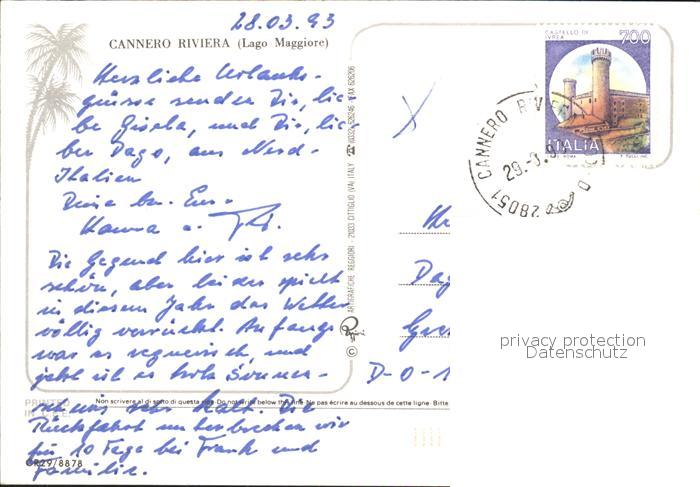 28.03.93
CANNERO RIVIERA (Lago Maggiore)
Herzliche Urlaubs-
grüsse senden Dir, lie-
be Gisela, und Dir, lie-
ber Dago, aus Nord-
Italien
Hanna u.
Die Gegend hier ist sehr
schön, aber leider spielt
in diesem Jahr das Wetter
völlig verrückt. Anfangs
war es regnerisch, und
jetzt ist es trotz Sonnen-
scheins sehr kalt. Die
Rückfahrt unterbrechen wir
für 10 Tage bei Frank und
Familie.
PRINTED
IN
CR29/8878
Non scrivere al di sotto di questa riga - Do not write below this line - Ne pas écrire au dessous de cette ligne - Bitte
ARTIGRAFICHE REGGIORI - 21033 CITTIGLIO (VA) ITALY ☎ (0332) 626245 - FAX 626206
©
CASTELLO DI
IVREA
700
ITALIA
28051 CANNERO RIV
29.
Dag
D-O-1
privacy protection
Datenschutz